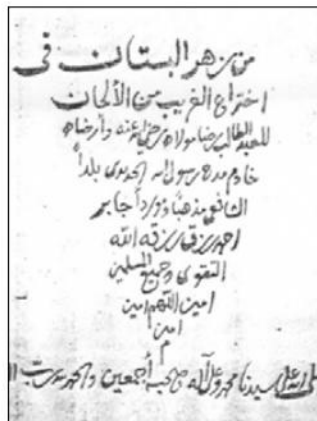 من زهر البستان فى
اختراع الغريب من الألحان
للعبد الطالب رضا مولاه رضى عنه وأرضاه
خادم مدح رسول الله بلداً
الشافعى مذهباً
احمد رزق رزقه الله
التقوى وجميع المسلمين
امين اللهم امين
امين
م
الله على سيدنا محمد وعلى آله وصحبه أجمعين والحمد لله رب